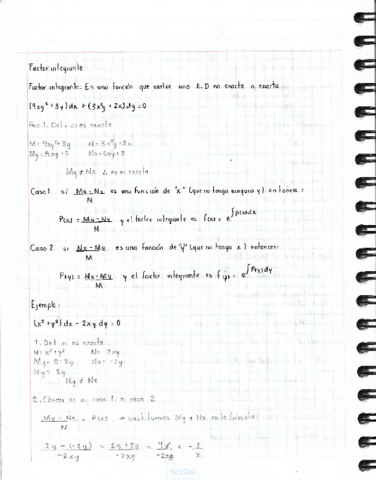 Factor integrante
Factor integrante: Es una función que vuelve una E.D no exacta a exacta
(4xy² + 3y)dx + (3x²y + 2x)dy = 0
1. Det. si es exacta
M = 4xy² + 3y N = 3x²y + 2x
My = 8xy + 3 Nx = 6xy + 2
My ≠ Nx ∴ no es exacta
Caso 1 si My - Nx / N es una función de "x" (que no tenga ninguna y) entonces:
P(x) = My - Nx / N y el factor integrante es f(x) = e^∫P(x)dx
Caso 2 si Nx - My / M es una función de "y" (que no tenga x) entonces:
P(y) = Nx - My / M y el factor integrante es f(y) = e^∫P(y)dy
Ejemplo:
(x² + y²)dx - 2xy dy = 0
1. Det si es exacta
M = x² + y² N = -2xy
My = 0 + 2y Nx = -2y
My = 2y
My ≠ Nx
2. Checar si es caso 1 o caso 2
My - Nx / N = P(x) → sustituimos My y Nx en la fórmula
2y - (-2y) / -2xy = 2y + 2y / -2xy = 4y / -2xy = - 2 / x